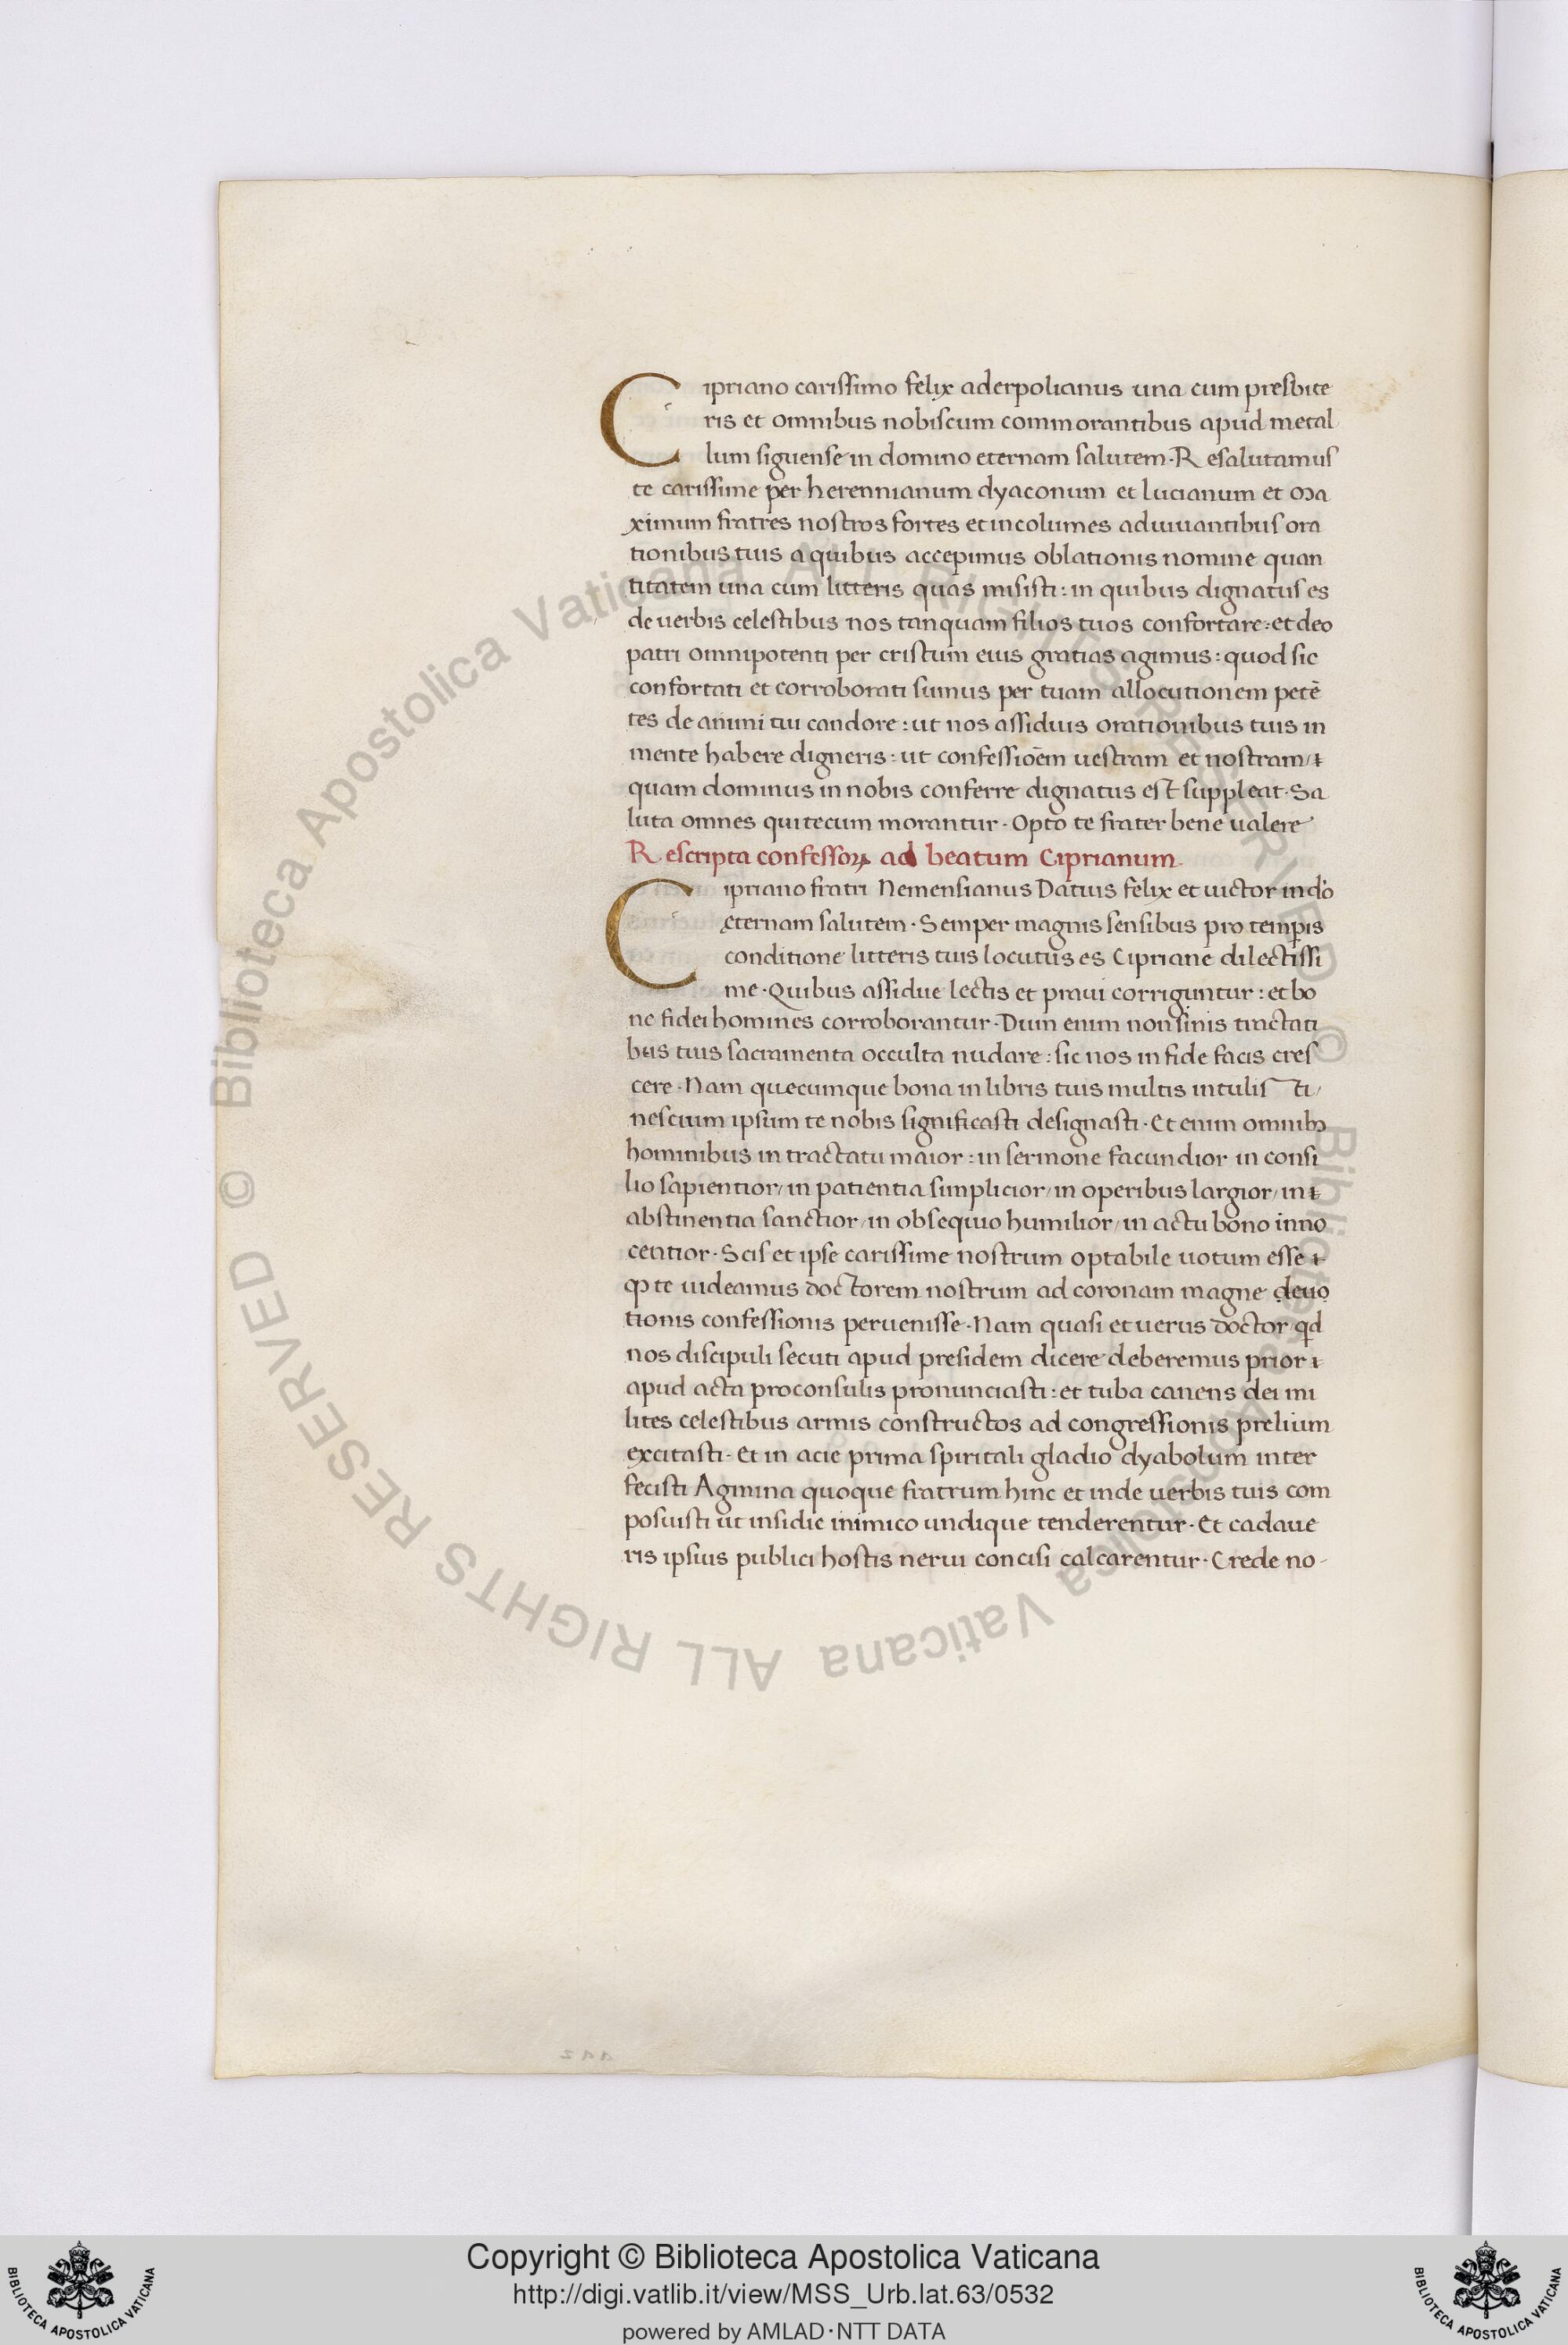 Cipriano carissimo felix aderpolianus una cum presbite
ris et omnibus nobiscum commorantibus apud metal
lum siguense in domino eternam salutem. Resalutamus
te carissime per herennianum dyaconum et lucianum et Ma
ximum fratres nostros fortes et incolumes adiuuantibus ora
tionibus tuis a quibus accepimus oblationis nomine quan
titatem una cum litteris quas misisti: in quibus dignatus es
de uerbis celestibus nos tanquam filios tuos confortare: et deo
patri omnipotenti per cristum eius gratias agimus: quod sic
confortati et corroborati sumus per tuam allocutionem petē
tes de animi tui candore: ut nos assiduis orationibus tuis in
mente habere digneris: ut confessiōem uestram et nostram/
quam dominus in nobis conferre dignatus est suppleat. Sa
luta omnes qui tecum morantur. Opto te frater bene ualere
Rescripta confessoꝝ ad beatum Ciprianum
Cipriano fratri Nemensianus Datiuus felix et uictor in dō
ęternam salutem. Semper magnis sensibus pro temꝑis
conditione litteris tuis locutus es Cipriane dilectissi
me. Quibus assidue lectis et praui corriguntur: et bo
ne fidei homines corroborantur. Dum enim non sinis tractati
bus tuis sacramenta occulta nudare: sic nos in fide facis cres
cere. Nam quecumque bona in libris tuis multis intulisti/
nescium ipsum te nobis significasti designasti. Et enim omnibꝫ
hominibus in tractatu maior: in sermone facundior in consi
lio sapientior/ in patientia simplicior/ in operibus largior/ in
abstinentia sanctior/ in obsequio humilior/ in actu bono inno
centior. Scis et ipse carissime nostrum optabile uotum esse
ꝙ te uideamus doctorem nostrum ad coronam magne deuo
tionis confessionis peruenisse. Nam quasi et uerus doctor qd
nos discipuli secuti apud presidem dicere deberemus prior
apud acta proconsulis pronunciasti: et tuba canens dei mi
lites celestibus armis constructos ad congressionis prelium
excitasti. Et in acie prima spiritali gladio dyabolum inter
fecisti Agmina quoque fratrum hinc et inde uerbis tuis com
posuisti ut insidie inimico undique tenderentur. Et cadaue
ris ipsius publici hostis nerui concisi calcarentur. Crede no-
© Biblioteca Apostolica Vaticana ALL RIGHTS RESERVED © Biblioteca Apostolica Vaticana ALL RIGHTS RESERVED
Copyright © Biblioteca Apostolica Vaticana
http://digi.vatlib.it/view/MSS_Urb.lat.63/0532
powered by AMLAD·NTT DATA
BIBLIOTECA APOSTOLICA VATICANA
BIBLIOTECA APOSTOLICA VATICANA